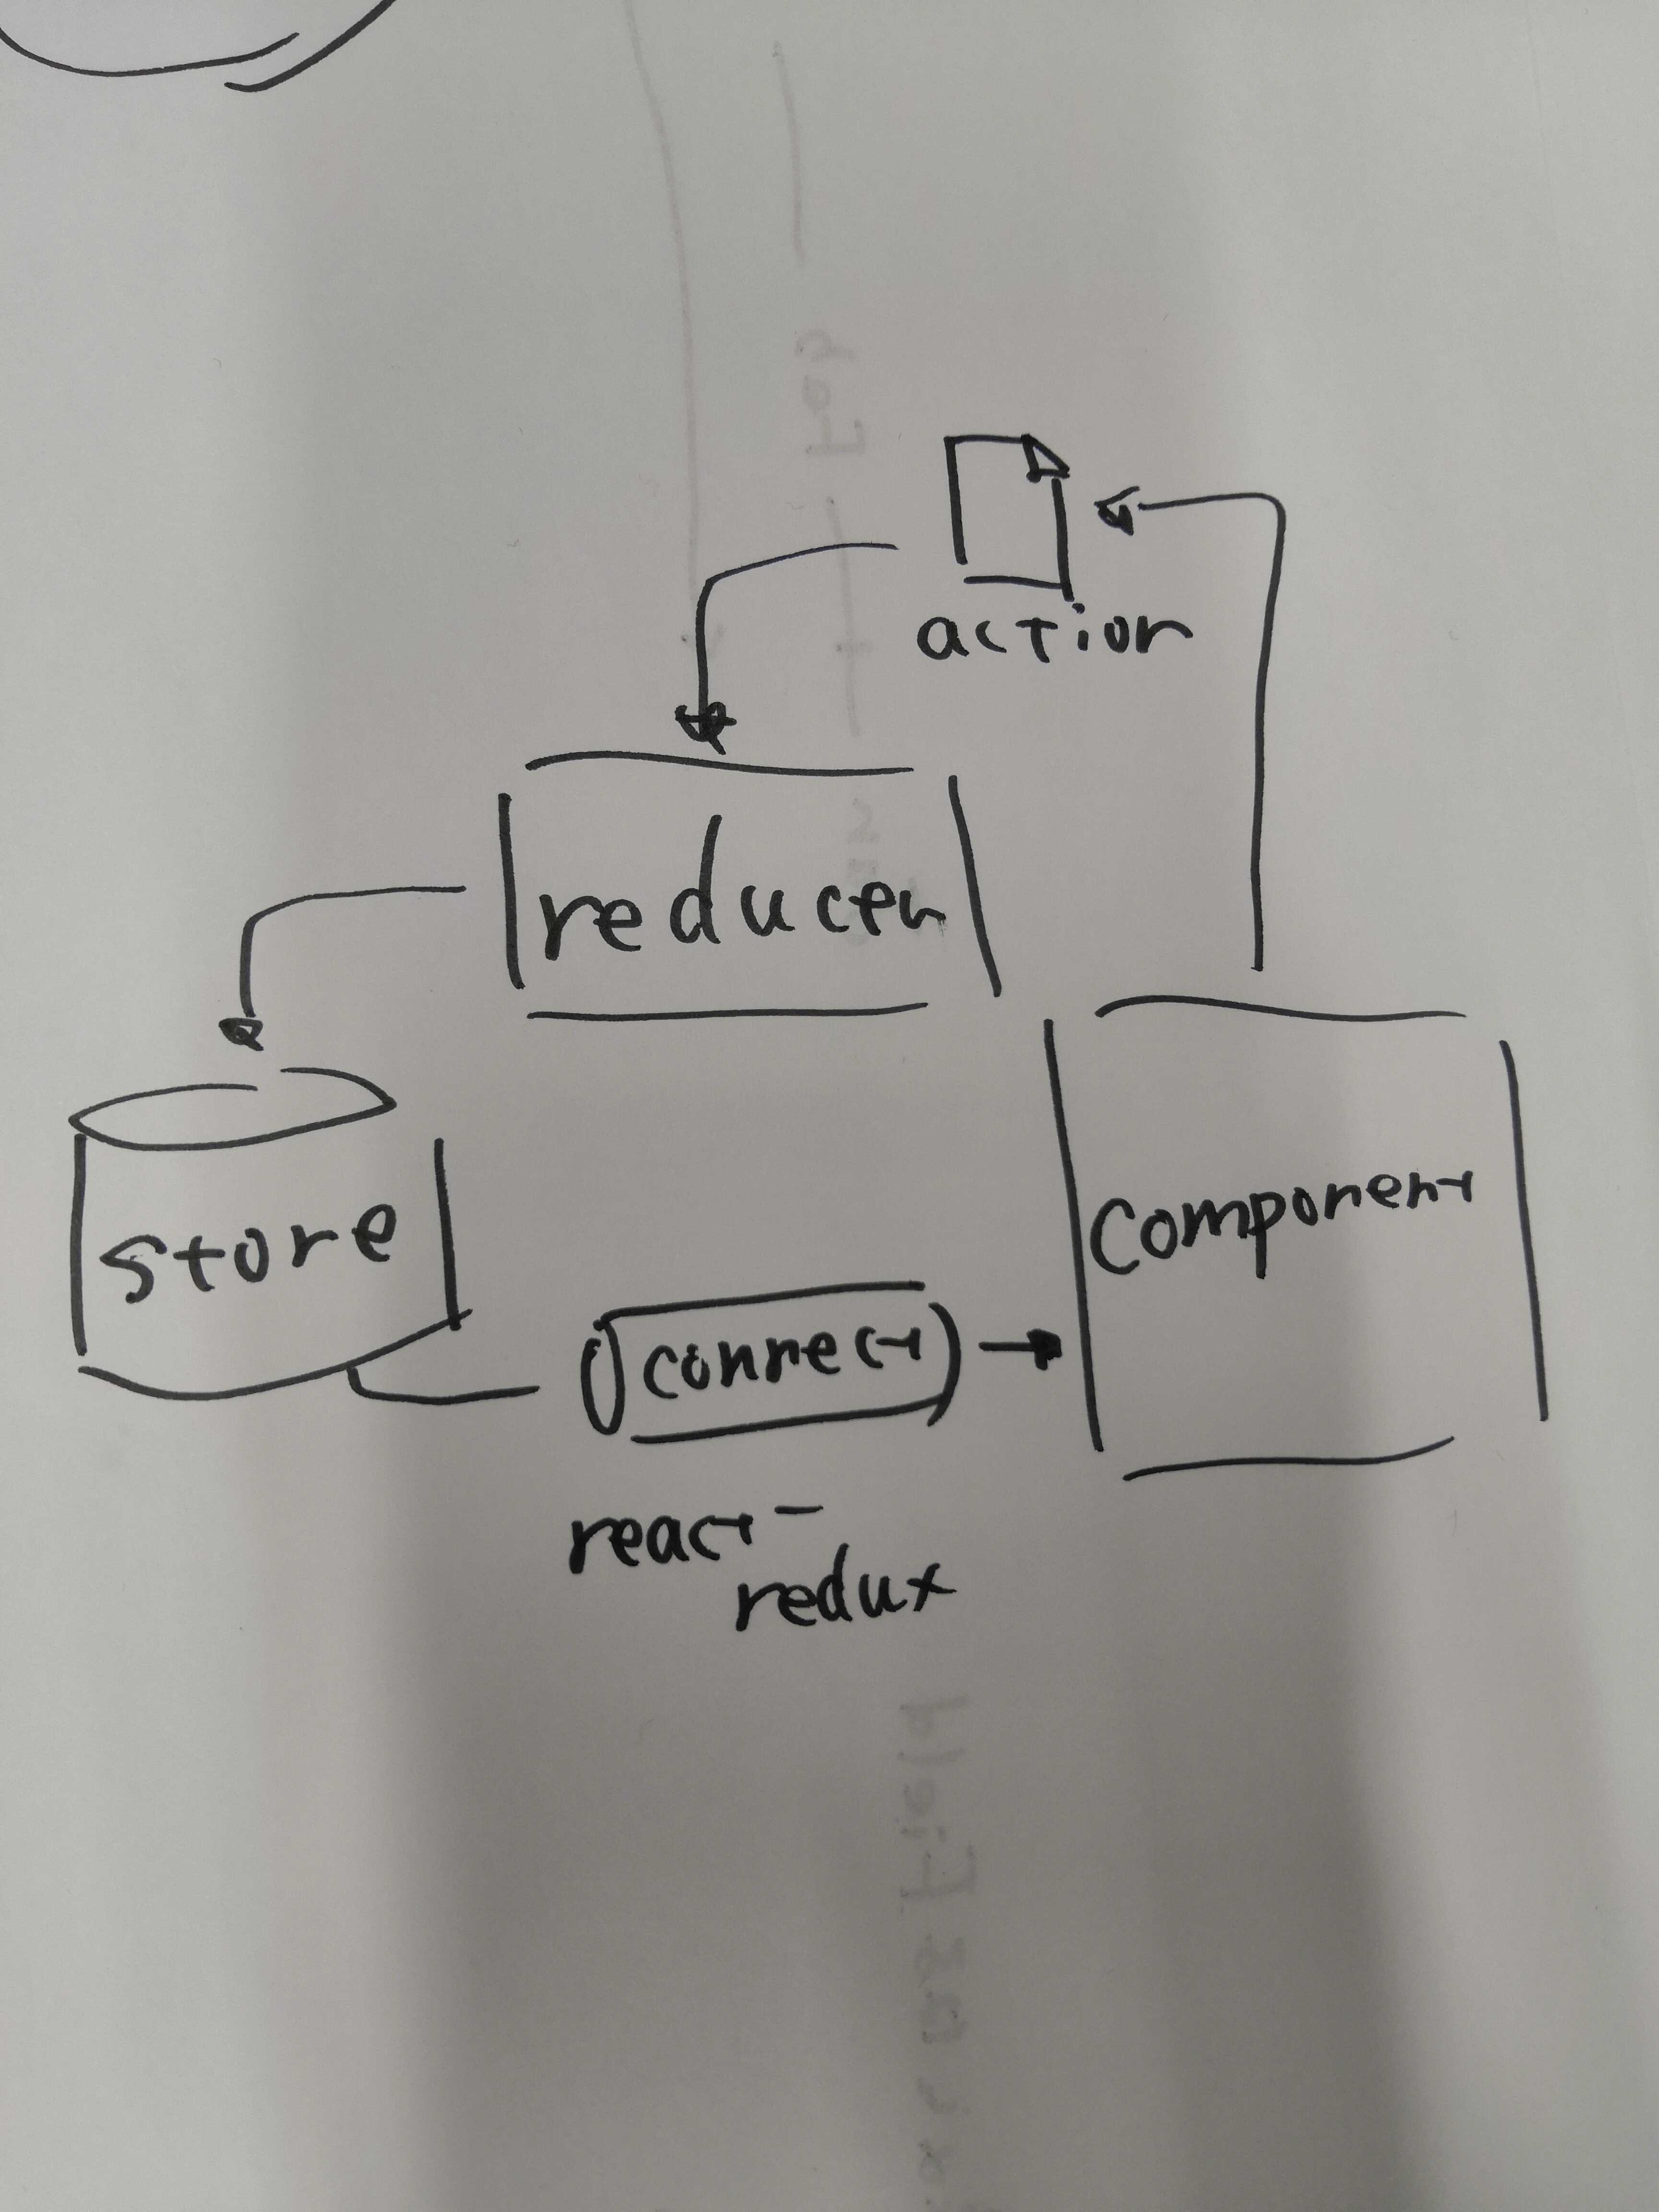 action
reducer
store
component
connect
react-
redux